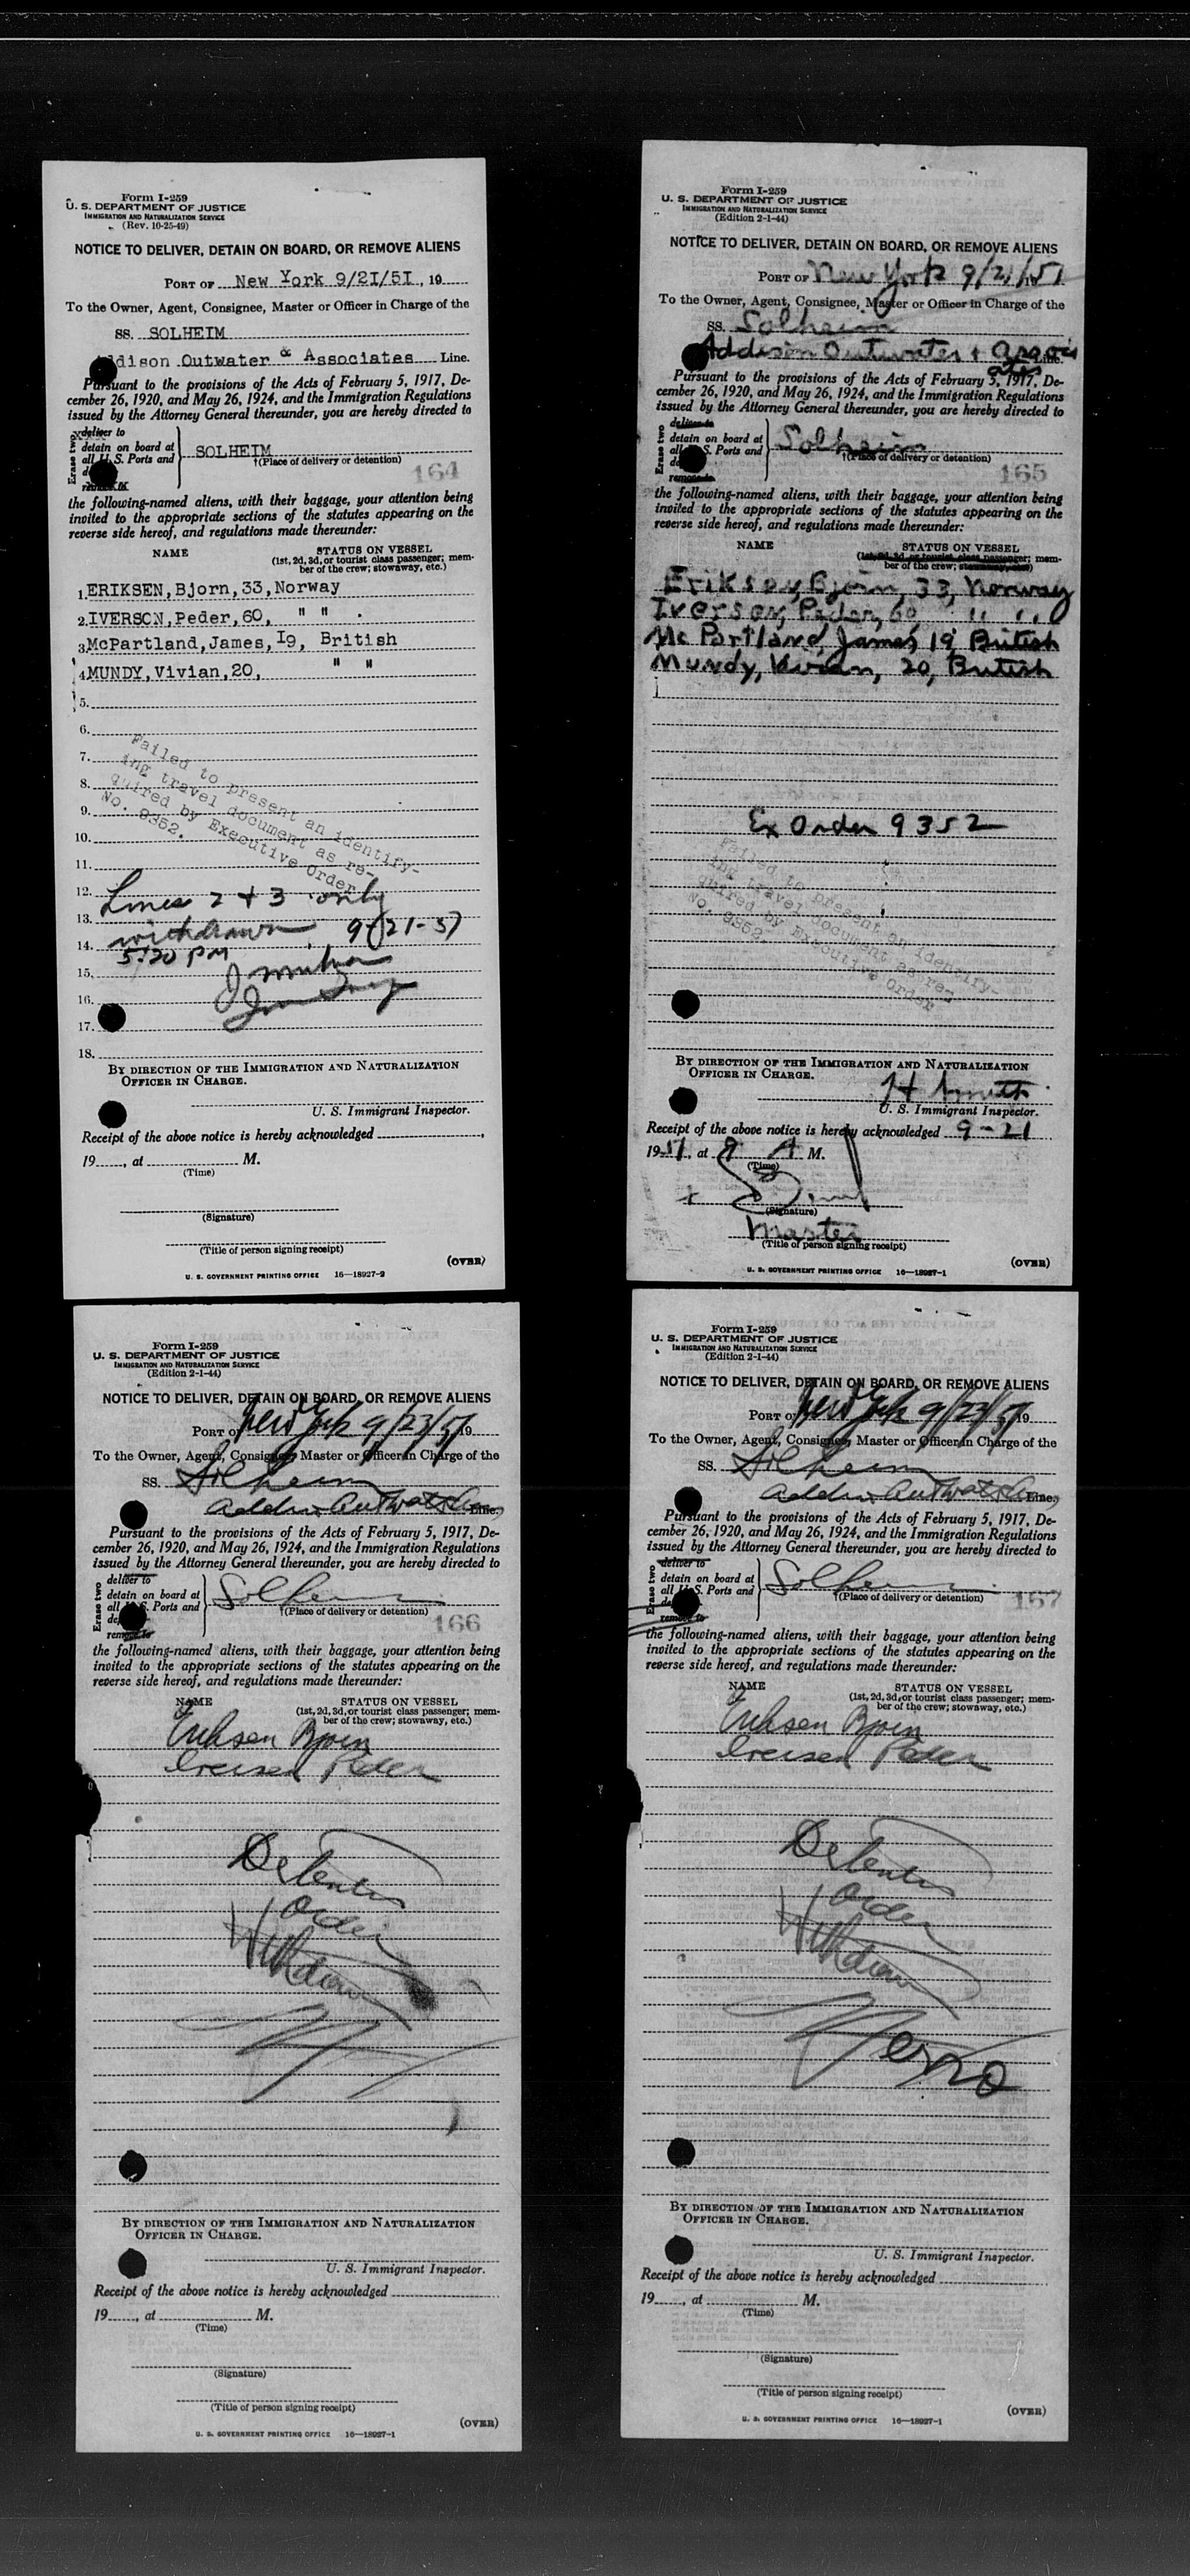 Form I-259
U. S. DEPARTMENT OF JUSTICE
IMMIGRATION AND NATURALIZATION SERVICE
(Rev. 10-25-49)
NOTICE TO DELIVER, DETAIN ON BOARD, OR REMOVE ALIENS
PORT OF New York 9/2I/5I, 19
To the Owner, Agent, Consignee, Master or Officer in Charge of the
SS. SOLHEIM
ddison Outwater & Associates Line.
Pursuant to the provisions of the Acts of February 5, 1917, De-
cember 26, 1920, and May 26, 1924, and the Immigration Regulations
issued by the Attorney General thereunder, you are hereby directed to
Erase two
deliver to
detain on board at
all U.S. Ports and
remove to
SOLHEIM
†(Place of delivery or detention)
164
the following-named aliens, with their baggage, your attention being
invited to the appropriate sections of the statutes appearing on the
reverse side hereof, and regulations made thereunder:
NAME STATUS ON VESSEL
(1st, 2d, 3d, or tourist class passenger; mem-
ber of the crew; stowaway, etc.)
1. ERIKSEN, Bjorn, 33, Norway
2. IVERSON, Peder, 60, " " .
3. McPartland, James, I9, British
4. MUNDY, Vivian, 20, " "
5.
6.
7.
8.
9.
10.
11.
12.
13.
14.
15.
16.
17.
18.
Failed to present an identify-
ing travel document as re-
quired by Executive Order
No. 9352.
Lines 2 + 3 only
withdrawn 9-21-51
5:20 PM
BY DIRECTION OF THE IMMIGRATION AND NATURALIZATION
OFFICER IN CHARGE.
U. S. Immigrant Inspector.
Receipt of the above notice is hereby acknowledged
19 , at M.
(Time)
(Signature)
(Title of person signing receipt)
(OVER)
U. S. GOVERNMENT PRINTING OFFICE 16—18927-2
Form I-259
U. S. DEPARTMENT OF JUSTICE
IMMIGRATION AND NATURALIZATION SERVICE
(Edition 2-1-44)
NOTICE TO DELIVER, DETAIN ON BOARD, OR REMOVE ALIENS
PORT OF New York 9/21/51
To the Owner, Agent, Consignee, Master or Officer in Charge of the
SS. Solheim
Addison Outwater + Line.
Pursuant to the provisions of the Acts of February 5, 1917, De-
cember 26, 1920, and May 26, 1924, and the Immigration Regulations
issued by the Attorney General thereunder, you are hereby directed to
Erase two
deliver to
detain on board at
all U.S. Ports and
remove to
Solheim
†(Place of delivery or detention)
165
the following-named aliens, with their baggage, your attention being
invited to the appropriate sections of the statutes appearing on the
reverse side hereof, and regulations made thereunder:
NAME STATUS ON VESSEL
(1st, 2d, 3d, or tourist class passenger; mem-
ber of the crew; stowaway, etc.)
Eriksen, Bjorn, 33, Norway
Iversen, Peder, 60 " "
Mc Partland, James, 19, British
Mundy, Vivian, 20, British
Ex Order 9352
Failed to present an identify-
ing travel document as re-
quired by Executive Order
No. 9352.
BY DIRECTION OF THE IMMIGRATION AND NATURALIZATION
OFFICER IN CHARGE.
H Smith
U. S. Immigrant Inspector.
Receipt of the above notice is hereby acknowledged 9-21
1951, at 9 A M.
(Time)
(Signature)
Master
(Title of person signing receipt)
(OVER)
U. S. GOVERNMENT PRINTING OFFICE 16—18927-1
Form I-259
U. S. DEPARTMENT OF JUSTICE
IMMIGRATION AND NATURALIZATION SERVICE
(Edition 2-1-44)
NOTICE TO DELIVER, DETAIN ON BOARD, OR REMOVE ALIENS
PORT OF New York 9/23/51 19
To the Owner, Agent, Consignee, Master or Officer in Charge of the
SS. Solheim
Line.
Pursuant to the provisions of the Acts of February 5, 1917, De-
cember 26, 1920, and May 26, 1924, and the Immigration Regulations
issued by the Attorney General thereunder, you are hereby directed to
Erase two
deliver to
detain on board at
all U.S. Ports and
remove to
Solheim
†(Place of delivery or detention)
166
the following-named aliens, with their baggage, your attention being
invited to the appropriate sections of the statutes appearing on the
reverse side hereof, and regulations made thereunder:
NAME STATUS ON VESSEL
(1st, 2d, 3d, or tourist class passenger; mem-
ber of the crew; stowaway, etc.)
Eriksen Bjorn
Iversen Peder
Detention
Order
Withdrawn
BY DIRECTION OF THE IMMIGRATION AND NATURALIZATION
OFFICER IN CHARGE.
U. S. Immigrant Inspector.
Receipt of the above notice is hereby acknowledged
19 , at M.
(Time)
(Signature)
(Title of person signing receipt)
(OVER)
U. S. GOVERNMENT PRINTING OFFICE 16—18927-1
Form I-259
U. S. DEPARTMENT OF JUSTICE
IMMIGRATION AND NATURALIZATION SERVICE
(Edition 2-1-44)
NOTICE TO DELIVER, DETAIN ON BOARD, OR REMOVE ALIENS
PORT OF New York 9/23/51 19
To the Owner, Agent, Consignee, Master or Officer in Charge of the
SS. Solheim
Line.
Pursuant to the provisions of the Acts of February 5, 1917, De-
cember 26, 1920, and May 26, 1924, and the Immigration Regulations
issued by the Attorney General thereunder, you are hereby directed to
Erase two
deliver to
detain on board at
all U.S. Ports and
remove to
Solheim
†(Place of delivery or detention)
167
the following-named aliens, with their baggage, your attention being
invited to the appropriate sections of the statutes appearing on the
reverse side hereof, and regulations made thereunder:
NAME STATUS ON VESSEL
(1st, 2d, 3d, or tourist class passenger; mem-
ber of the crew; stowaway, etc.)
Eriksen Bjorn
Iversen Peder
Detention
Order
Withdrawn
BY DIRECTION OF THE IMMIGRATION AND NATURALIZATION
OFFICER IN CHARGE.
U. S. Immigrant Inspector.
Receipt of the above notice is hereby acknowledged
19 , at M.
(Time)
(Signature)
(Title of person signing receipt)
(OVER)
U. S. GOVERNMENT PRINTING OFFICE 16—18927-1